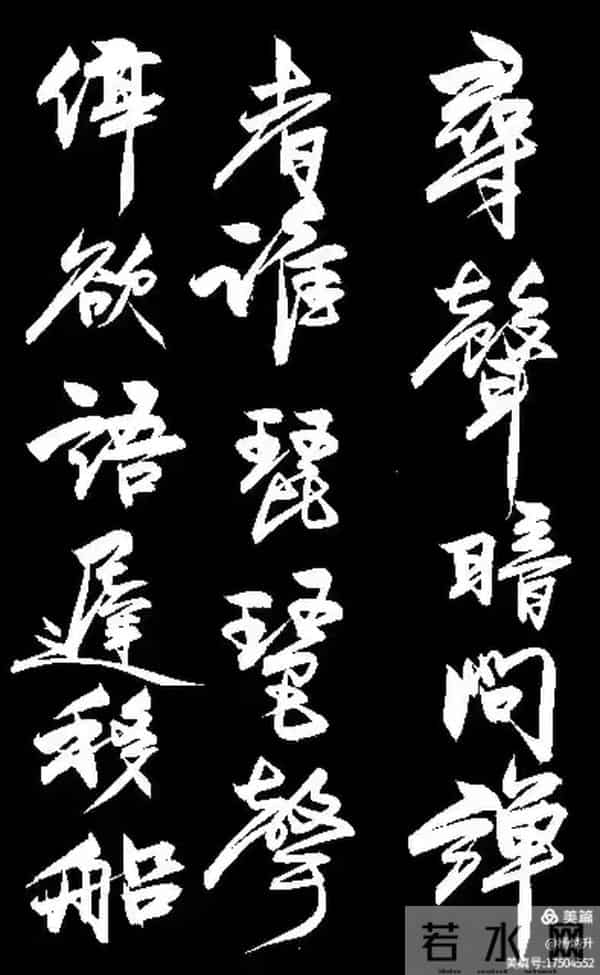 尋聲暗問彈
者誰琵琶聲
停欲語遲移船
美篇
若水网
美篇号:17504552